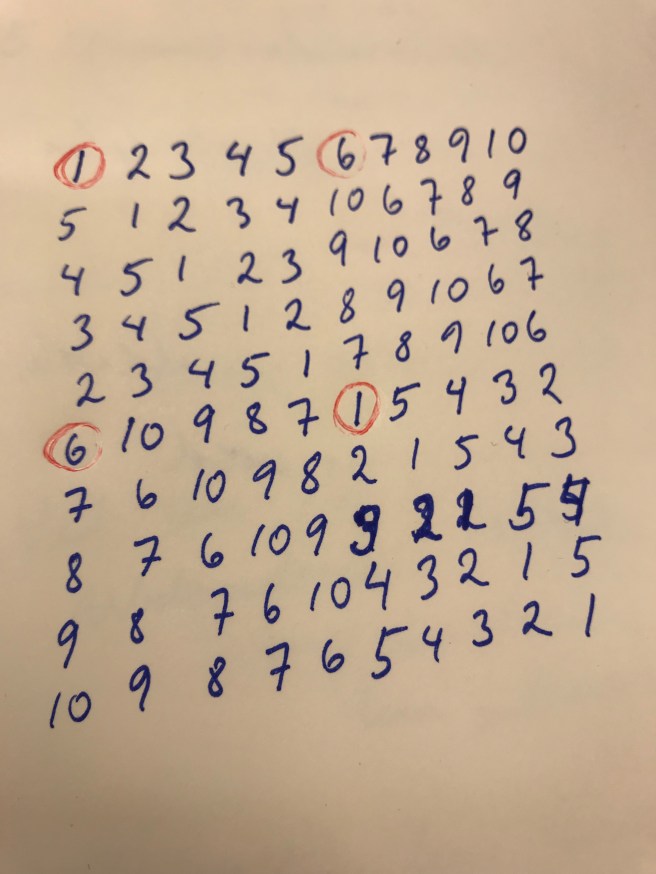 1 2 3 4 5 6 7 8 9 10
5 1 2 3 4 10 6 7 8 9
4 5 1 2 3 9 10 6 7 8
3 4 5 1 2 8 9 10 6 7
2 3 4 5 1 7 8 9 10 6
6 10 9 8 7 1 5 4 3 2
7 6 10 9 8 2 1 5 4 3
8 7 6 10 9 3 2 1 5 4
9 8 7 6 10 4 3 2 1 5
10 9 8 7 6 5 4 3 2 1